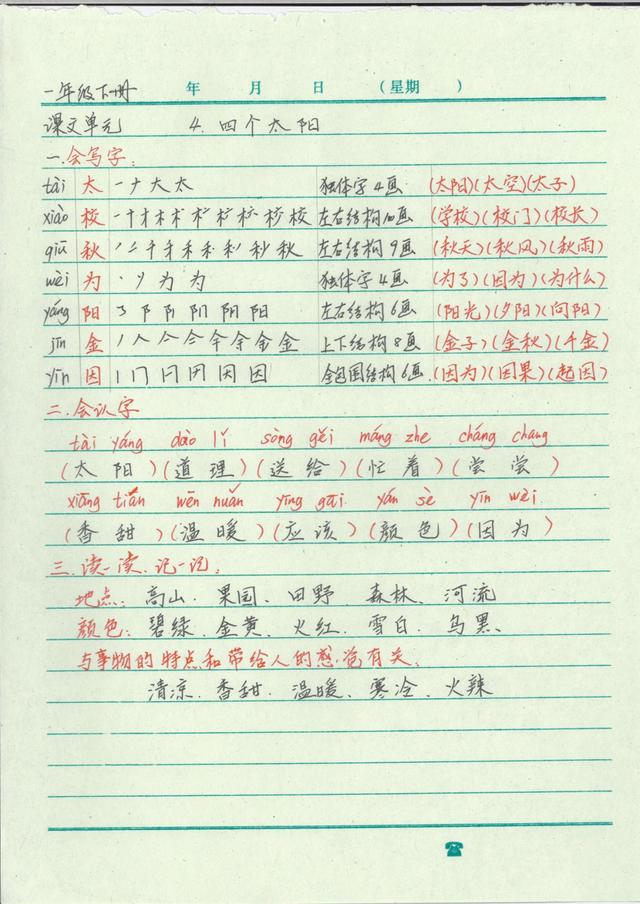 一年级下册 年 月 日 (星期 )
课文单元 4.四个太阳
一.会写字:
tài 太 一ナ大太 独体字4画 (太阳)(太空)(太子)
xiào 校 一十才木木杧杧栌校校 左右结构10画 (学校)(校门)(校长)
qiū 秋 左右结构9画 (秋天)(秋风)(秋雨)
wèi 为 丶丷为为 独体字4画 (为了)(因为)(为什么)
yáng 阳 左右结构6画 (阳光)(夕阳)(向阳)
jīn 金 上下结构8画 (金子)(金秋)(千金)
yīn 因 全包围结构6画 (因为)(因果)(起因)
二.会认字
tài yáng dào lǐ sòng gěi máng zhe cháng chang
(太阳)(道理)(送给)(忙着)(尝尝)
xiāng tián wēn nuǎn yīng gāi yán sè yīn wèi
(香甜)(温暖)(应该)(颜色)(因为)
三.读一读.记一记:
地点:高山、果园、田野、森林、河流
颜色:碧绿、金黄、火红、雪白、乌黑、
与事物的特点和带给人的感觉有关、
清凉、香甜、温暖、寒冷、火辣